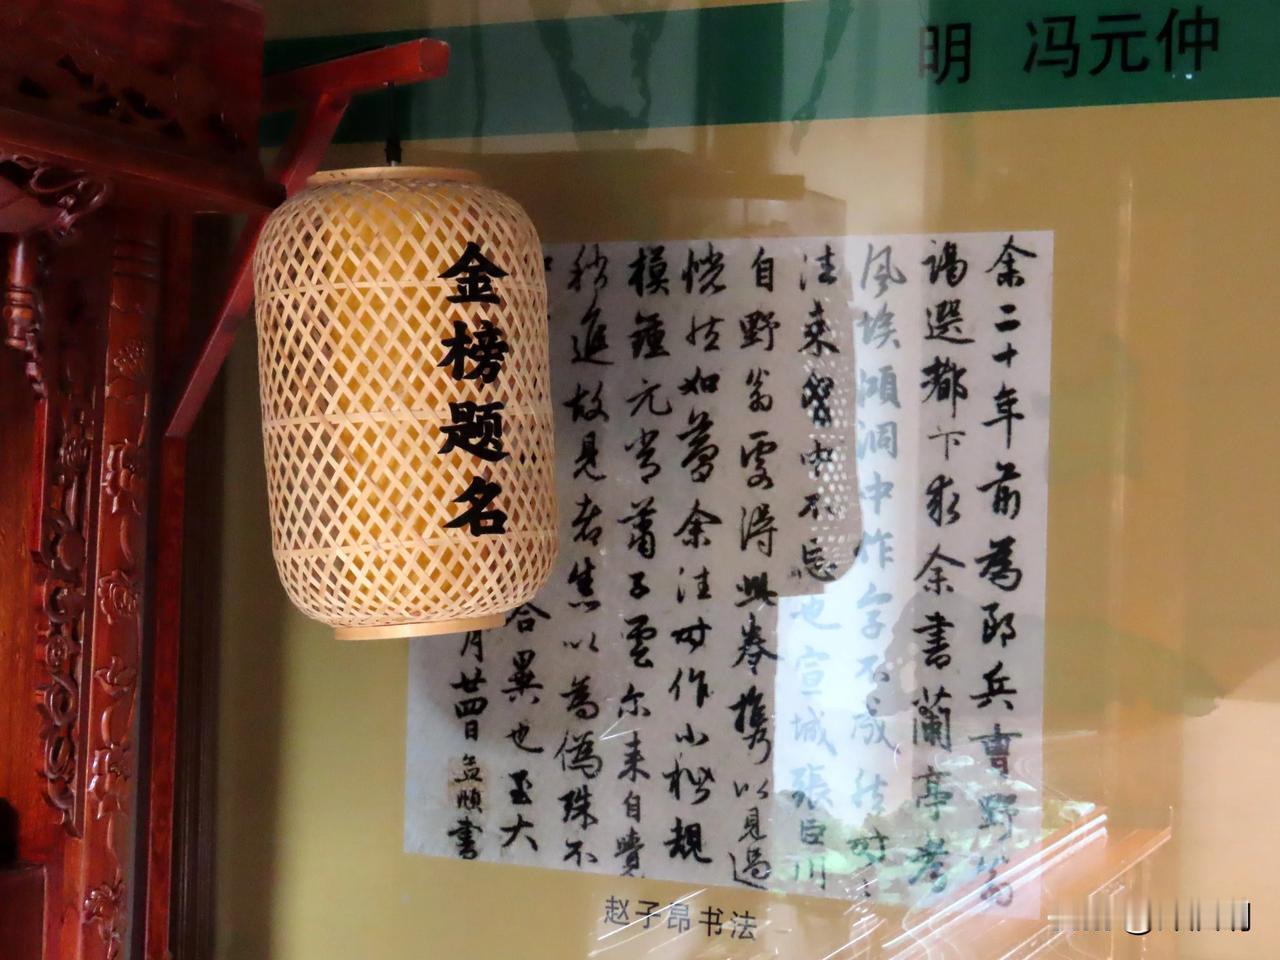 明 冯元仲
金榜题名
余二十年前為郎兵曹野翁
謁選都下求余書蘭亭考
風埃澒洞中作字不成然時
往來胸中不忘也宣城張臣川
自野翁處得此卷携以見過
恍然如夢余往時作小楷規
模鍾元常蕭子雲尔来自覺
稍進故見者焦以為偽殊不
合異也至大
月廿四日孟頫書
赵子昂书法